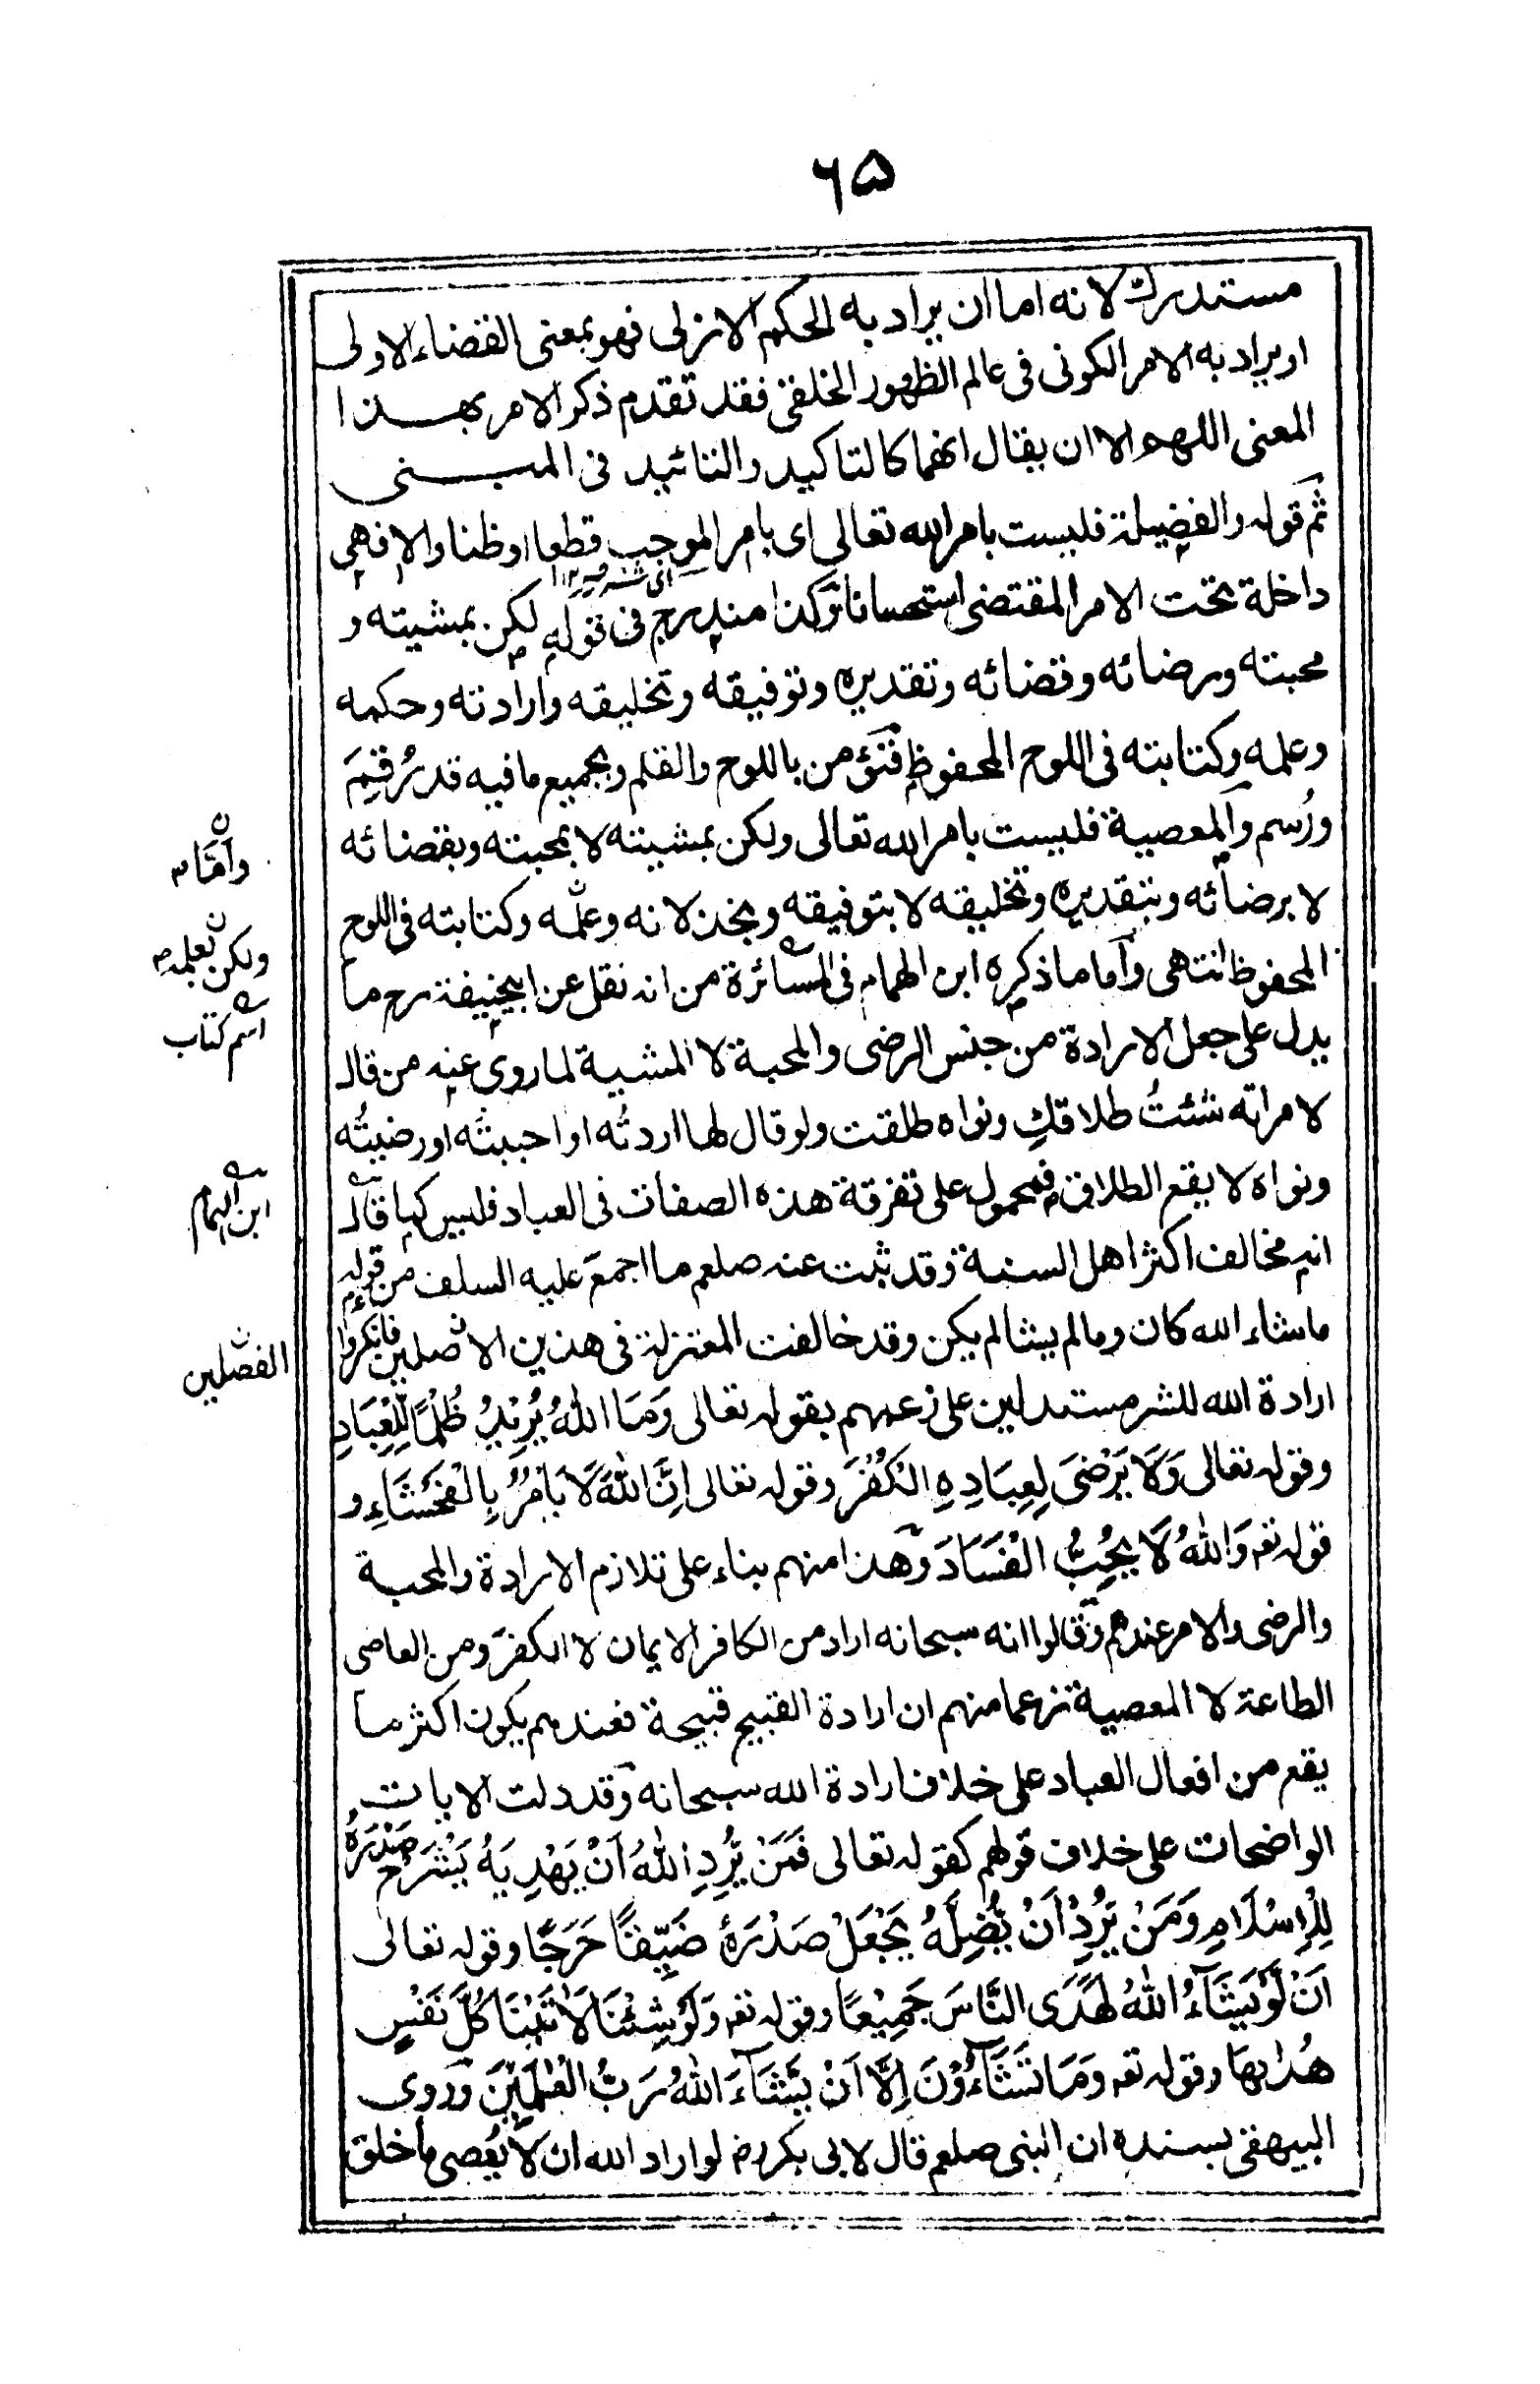 ٦٥
مستدرك لانه اما ان يراد به الحكم الازلى فهو بمعنى القضاء الاولى
او يراد به الامر الكونى فى عالم الظهور الخلقى فقد تقدم ذكر الامر بهذا
المعنى اللهم الا ان يقال انهما كالتاكيد والتائيد فى المبنى
ثم قوله والفضيلة فليست بامر الله تعالى اى بامر الموجب قطعا او ظنا والا فهى
داخلة تحت الامر المقتضى استحسانا وكذا مندرج فى قوله لكن بمشيته و
محبته ورضائه وقضائه وتقديره وتوفيقه وتخليقه وارادته وحكمه
وعلمه وكتابته فى اللوح المحفوظ فنؤمن باللوح والقلم وبجميع ما فيه قد رُقِمَ
ورُسم والمعصية فليست بامر الله تعالى ولكن بمشيته لا بمحبته وبقضائه
لا برضائه وبتقديره وتخليقه لا بتوفيقه وبخذلانه وعلمه وكتابته فى اللوح
المحفوظ انتهى وآما ما ذكره ابن الهمام فى المسائرة من انه نقل عن ابيحنيفة رح ما
يدل على جعل الارادة من جنس الرضى والمحبة لا المشية لما روى عنه من قال
لامراته شئتُ طلاقكِ ونواه طلقت ولو قال لها اردتُه او احببتُه او رضيتُه
ونواه لا يقع الطلاق فمحمول على تفرقة هذه الصفات فى العباد فليس كما قال
انه مخالف اكثر اهل السنة وقد ثبت عنه صلعم ما اجمع عليه السلف من قوله
ماشاء الله كان وما لم يشا لم يكن وقد خالفت المعتزلة فى هذين الاصلين فانكروا
ارادة الله للشر مستدلين على زعمهم بقوله تعالى وَمَا اللهُ يُرِيْدُ ظُلْمًا لِّلْعِبَادِ
وقوله تعالى وَلَا يَرْضٰى لِعِبَادِهِ الْكُفْرَ وقوله تعالى اِنَّ اللهَ لَا يَاْمُرُ بِالْفَحْشَاءِ و
قوله تعه وَاللهُ لَا يُحِبُّ الْفَسَادَ وهذا منهم بناء على تلازم الارادة والمحبة
والرضى والامر عندهم وقالوا انه سبحانه اراد من الكافر الايمان لا الكفر ومن العاصى
الطاعة لا المعصية زعما منهم ان ارادة القبيح قبيحة فعندهم يكون اكثر ما
يقع من افعال العباد على خلاف ارادة الله سبحانه وقد دلت الايات
الواضحات على خلاف قولهم كقوله تعالى فَمَنْ يُّرِدِ اللهُ اَنْ يَهْدِيَهُ يَشْرَحْ صَدْرَهُ
لِلْاِسْلَامِ وَمَنْ يُرِدْ اَنْ يُّضِلَّهُ يَجْعَلْ صَدْرَهُ ضَيِّقًا حَرَجًا وقوله تعالى
اَنْ لَوْ يَشَآءُ اللهُ لَهَدَى النَّاسَ جَمِيْعًا وقوله تعه وَلَوْ شِئْنَا لَاٰتَيْنَا كُلَّ نَفْسٍ
هُدٰىهَا وقوله تعه وَمَا تَشَآءُوْنَ اِلَّا اَنْ يَّشَآءَ اللهُ رَبُّ الْعٰلَمِيْنَ وروى
البيهقى بسنده ان النبى صلعم قال لابى بكر رض لو اراد الله ان لا يعصى ما خلق
وآمَّا
ولكن بعلمه
اسم كتاب
ابن الهمام
الفصلين